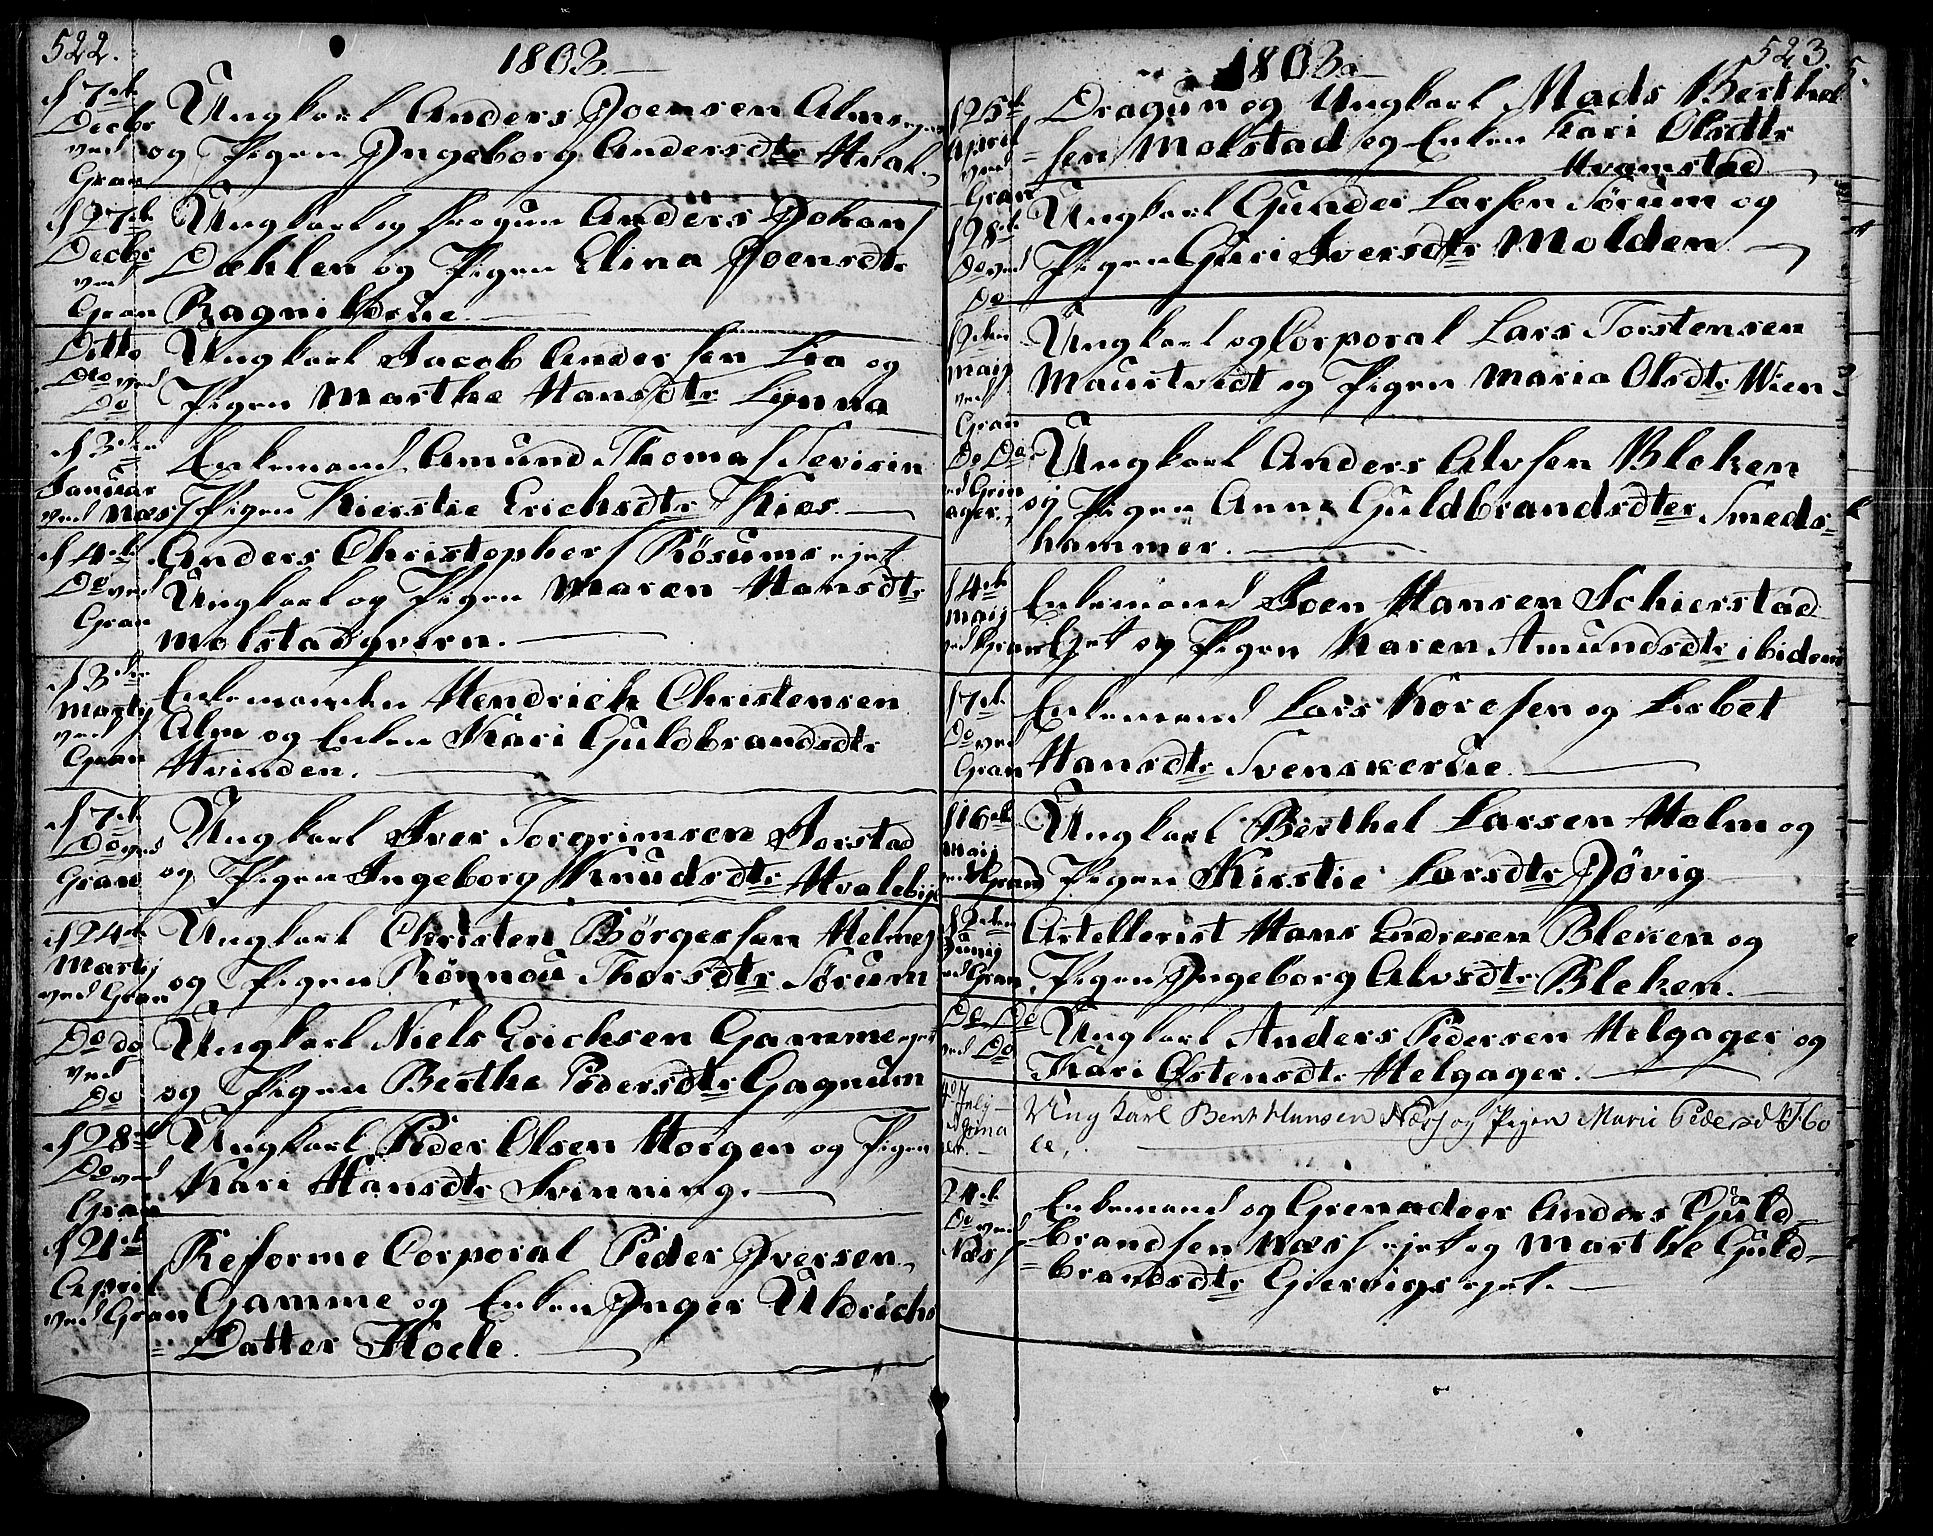 522.
1803
d 7de
Decbr
ved
Gran
Ungkarl Anders Joensen Alms
og Pigen Ingeborg Andersdtr Hval
d 27de
Decbr
ved
Gran
Ungkarl og Dragun Anders Johans
Dæhlen og Pigen Elina Joensdtr
Ragnildrue
Ditto
Do ved
Do
Ungkarl Jacob Andersen Lia og
Pigen Marthe Hansdtr Lynna
d 3die
Januar
ved Næs
Enkemand Amund Thomas Tevisin
Pigen Kierstie Erichsdtr Kios
d 4de
Do ved
Gran
Anders Christophers Rösums ejet
Ungkarl og Pigen Maren Hansdtr
Molstadqvern.
d 3die
Martij
ved
Gran
Enkemanden Hendrich Christensen
Alm og Enken Kari Guldbrandsdtr
Hvinden.
d 7de
Do ved
Gran
Ungkarl Iver Torgrimsen Jorstad
og Pigen Ingeborg Knudsdtr Hvaleby
d 24de
Martij
ved Gran
Ungkarl Christen Börgersen Helmej
og Pigen Rönnou Thorsdtr Sörum
Do do
ved
Do
Ungkarl Niels Erichsen Gamme ejet
og Pigen Berthe Pedersdtr Gagnum
d 28de
Do ved
Gran
Ungkarl Peder Olsen Horgen og Pigen
Kari Hansdtr Svinning.
d 21de
April
ved Gran
Reforme Corporal Peder Iversen
Gamme og Enken Inger Uldrichs
Datter Koele.
523.
1803
d 25de
April
ved
Gran
Dragun og Ungkarl Mads Berthel
sen Molstad og Enken Kari Olsdtr
Hvamstad
d 28de
Do ved
Do
Ungkarl Gunder Larsen Sörum og
Pigen Guri Iversdtr Molden
d 2den
Maij
ved
Gran
Ungkarl og Corporal Lars Torstensen
Maurtvedt og Pigen Maria Olsdtr Wien
Do Do
ved Grin
ager.
Ungkarl Anders Alvsen Bleken
og Pigen Anne Guldbrandsdter Smeds-
hammer.
d 4de
Maij
ved Gran
Enkemand Joen Hansen Schierstad
Ejet og Pigen Karen Amundsdtr ibidem
d 7de
Do ved
Gran
Enkemand Lars Koresen og Lisbet
Hansdtr Svenskerue
d 16de
Maij
ved Gran
Ungkarl Berthel Larsen Holm og
Pigen Kirstie Larsdtr Jövig
d 2den
Junij
ved Gran
Artellerist Hans Endresen Bleken og
Pigen Ingeborg Alvsdtr Bleken.
Do Do
ved Do
Ungkarl Anders Pedersen Helgager og
Kari Östensdtr Helgager.
Julij
Ung karl Bent Hansen Næss og Pigen Marie Pedersd
24de
Do ved
Næss
Enkemand og Grenadeer Anders Guld
brandsen Næss ejet og Marthe Guld-
brandsdtr Giervigs ejet.